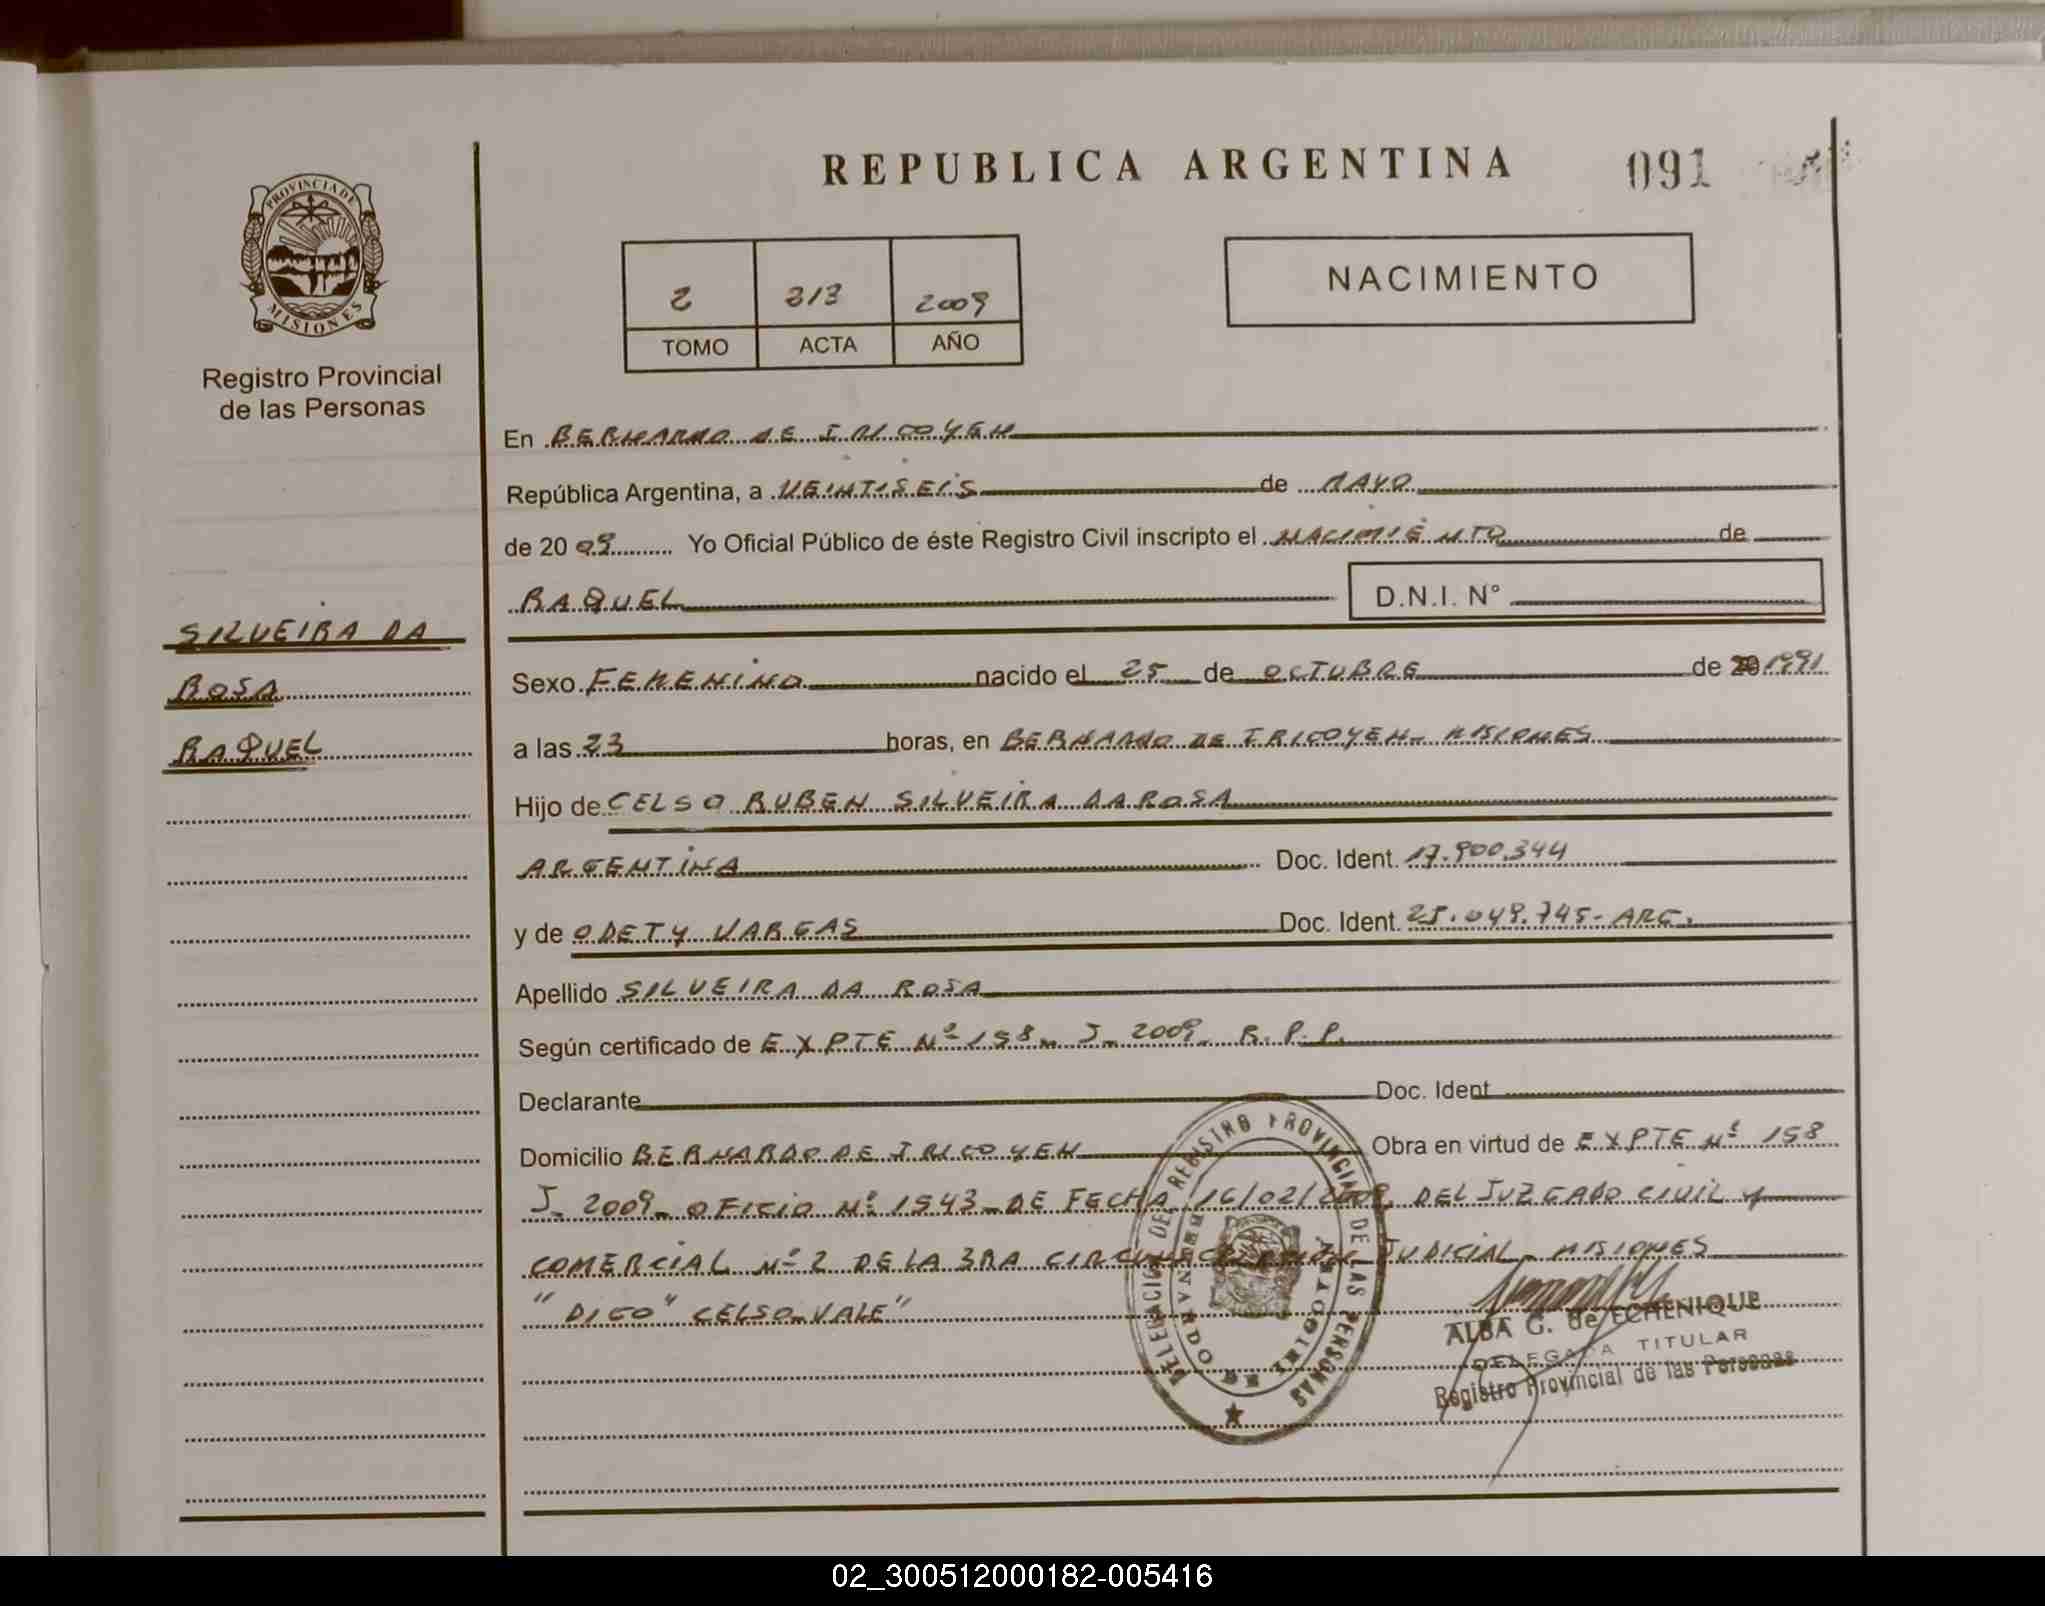 REPUBLICA ARGENTINA 091
PROVINCIA DE
MISIONES
Registro Provincial
de las Personas
NACIMIENTO
2 213 2009
TOMO ACTA AÑO
En BERNARDO DE IRIGOYEN
República Argentina, a VEINTISEIS de MAYO
de 2009 Yo Oficial Público de éste Registro Civil inscripto el NACIMIENTO de
RAQUEL D.N.I. N°
SILVEIRA DA
ROSA
RAQUEL
Sexo FEMENINO nacido el 25 de OCTUBRE de 1991
a las 23 horas, en BERNARDO DE IRIGOYEN - MISIONES
Hijo de CELSO RUBEN SILVEIRA DA ROSA
ARGENTINA Doc. Ident. 17.900.344
y de ODETY VARGAS Doc. Ident. 25.049.745 - ARG.
Apellido SILVEIRA DA ROSA
Según certificado de EXPTE Nº 158 - J - 2009 - R.P.P.
Declarante Doc. Ident
Domicilio BERNARDO DE IRIGOYEN Obra en virtud de EXPTE Nº 158
J - 2009 - OFICIO Nº 1543 - DE FECHA 16/02/2009 DEL JUZGADO CIVIL Y
COMERCIAL Nº 2 DE LA 3RA CIRCUNSCRIPCION JUDICIAL - MISIONES
"DIGO" CELSO - VALE"
REGISTRO PROVINCIAL DE LAS PERSONAS
ALBA G. de ECHENIQUE
DELEGADA TITULAR
Registro Provincial de las Personas
02_300512000182-005416